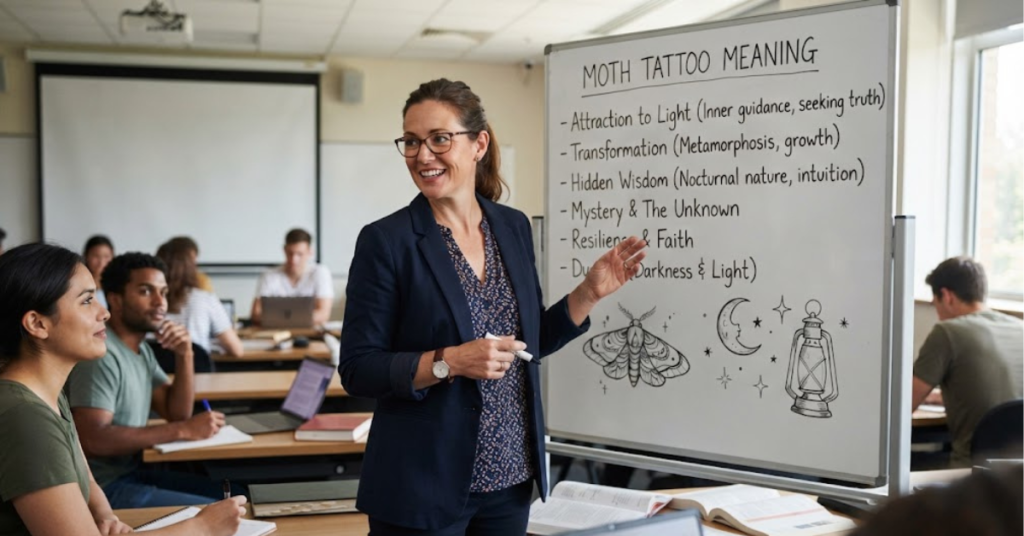 MOTH TATTOO MEANING
- Attraction to Light (Inner guidance, seeking truth)
- Transformation (Metamorphosis, growth)
- Hidden Wisdom (Nocturnal nature, intuition)
- Mystery & The Unknown
- & Faith
- Darkness & Light)